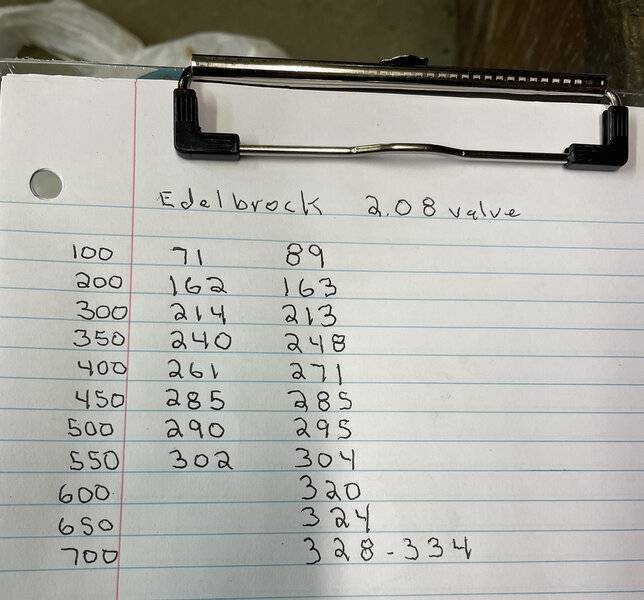 Edelbrock 2.08 valve
100 71 89
200 162 163
300 214 213
350 240 248
400 261 271
450 285 285
500 290 295
550 302 304
600 320
650 324
700 328-334